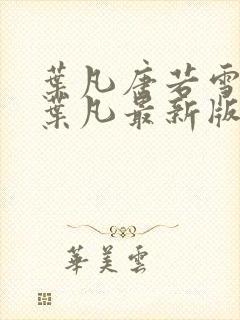 葉凡唐若雪
葉凡最新版
華美雲